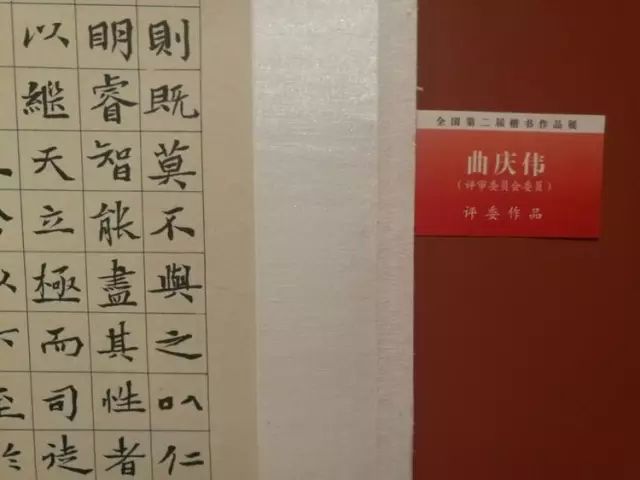 則既莫不與之㕥仁
明睿智能盡其性者
以繼天立極而司徒
全国第二届楷书作品展
曲庆伟
（评审委员会委员）
评委作品